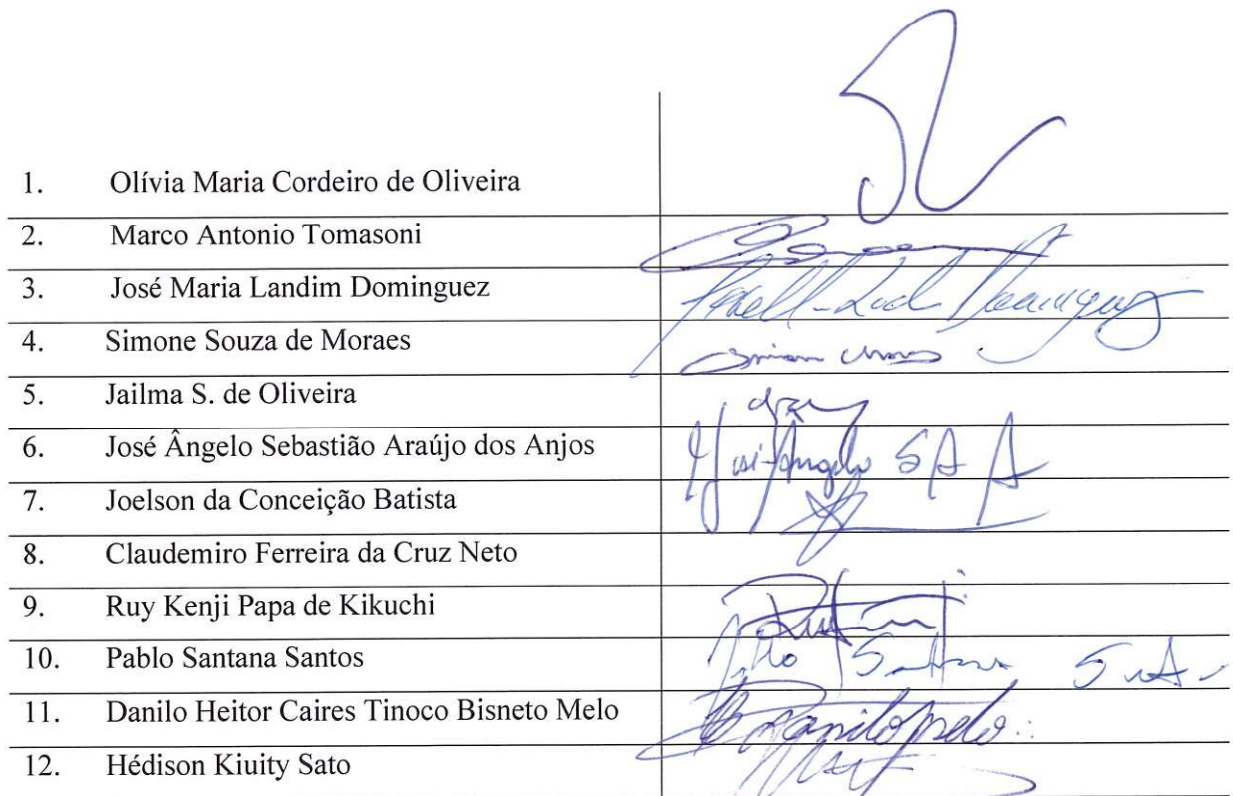 1. Olívia Maria Cordeiro de Oliveira
2. Marco Antonio Tomasoni
3. José Maria Landim Dominguez
4. Simone Souza de Moraes
5. Jailma S. de Oliveira
6. José Ângelo Sebastião Araújo dos Anjos José Angelo SAA
7. Joelson da Conceição Batista
8. Claudemiro Ferreira da Cruz Neto
9. Ruy Kenji Papa de Kikuchi
10. Pablo Santana Santos
11. Danilo Heitor Caires Tinoco Bisneto Melo Danilo Melo
12. Hédison Kiuity Sato